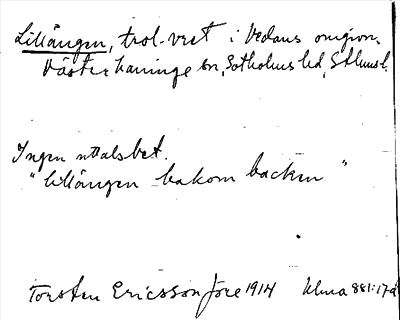 Lillängen, trol. vret i Vedans omgivn.
Västerhaninge sn, Sotholms hd, Sthlms l.
Ingen uttalsbet.
"lillängen bakom backen"
Torsten Ericsson före 1914 Ulma 881:17a